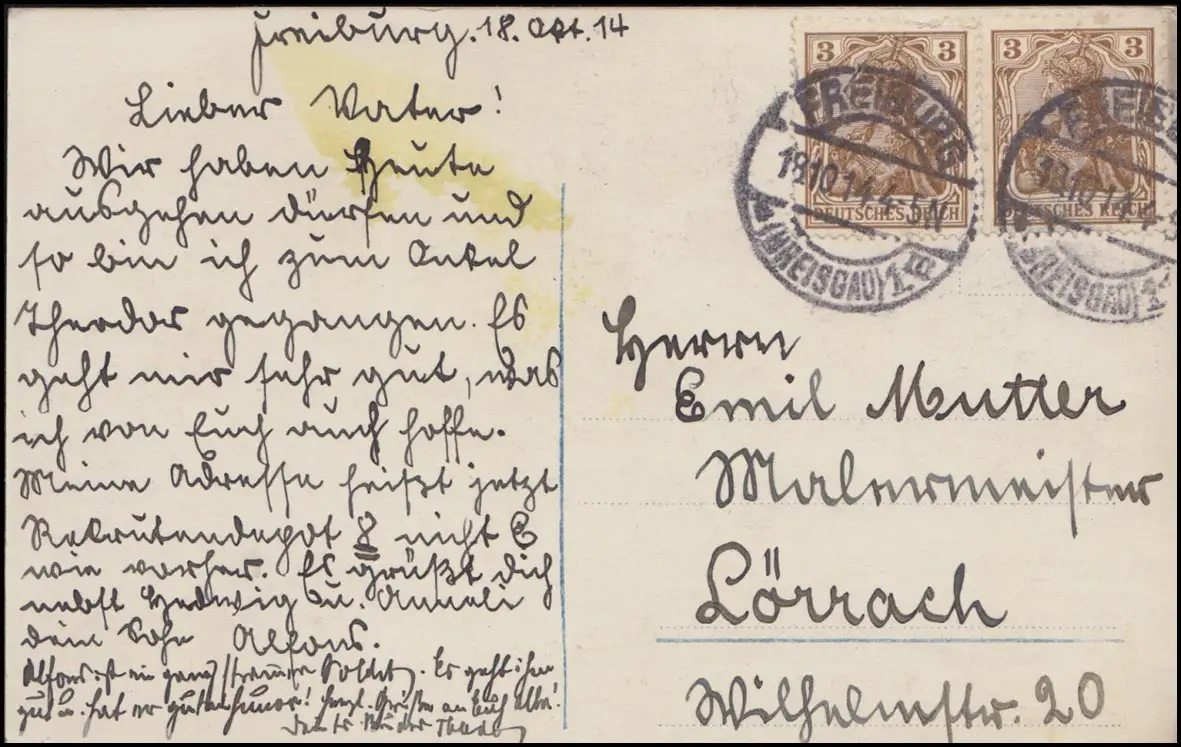 Freiburg. 18. Okt. 14
Lieber Vater!
Wir haben Heute
ausgehen dürfen und
so bin ich zum Onkel
Theodor gegangen. Es
geht mir sehr gut, was
ich von Euch auch hoffe.
Meine Adresse heißt jetzt
Rekrutendepot 8 nicht 6
wie vorher. Es grüßt Dich
nebst Hedwig u. Anneli
dein Sohn Alfons.
Alfons ist ein ganz strammer Soldat. Es geht ihm
gut u. hat er guten Humor! Herzl. Grüße an Euch alle!
Dein tr. Bruder Theodor
3 3
DEUTSCHES REICH
3 3
DEUTSCHES REICH
FREIBURG
18.10.14.4-5N
(BREISGAU) 1
FREIBURG
18.10.14
(BREISGAU) 1
Herrn
Emil Mutter
Malermeister
Lörrach
Wilhelmstr. 20